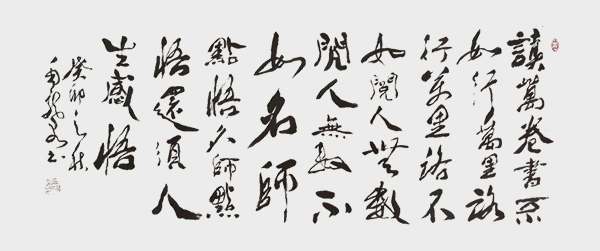 讀萬卷書不
如行萬里路
行萬里路不
如閱人無數
閱人無數不
如名師
點悟名師點
悟還須人
生感悟
癸卯之秋
書